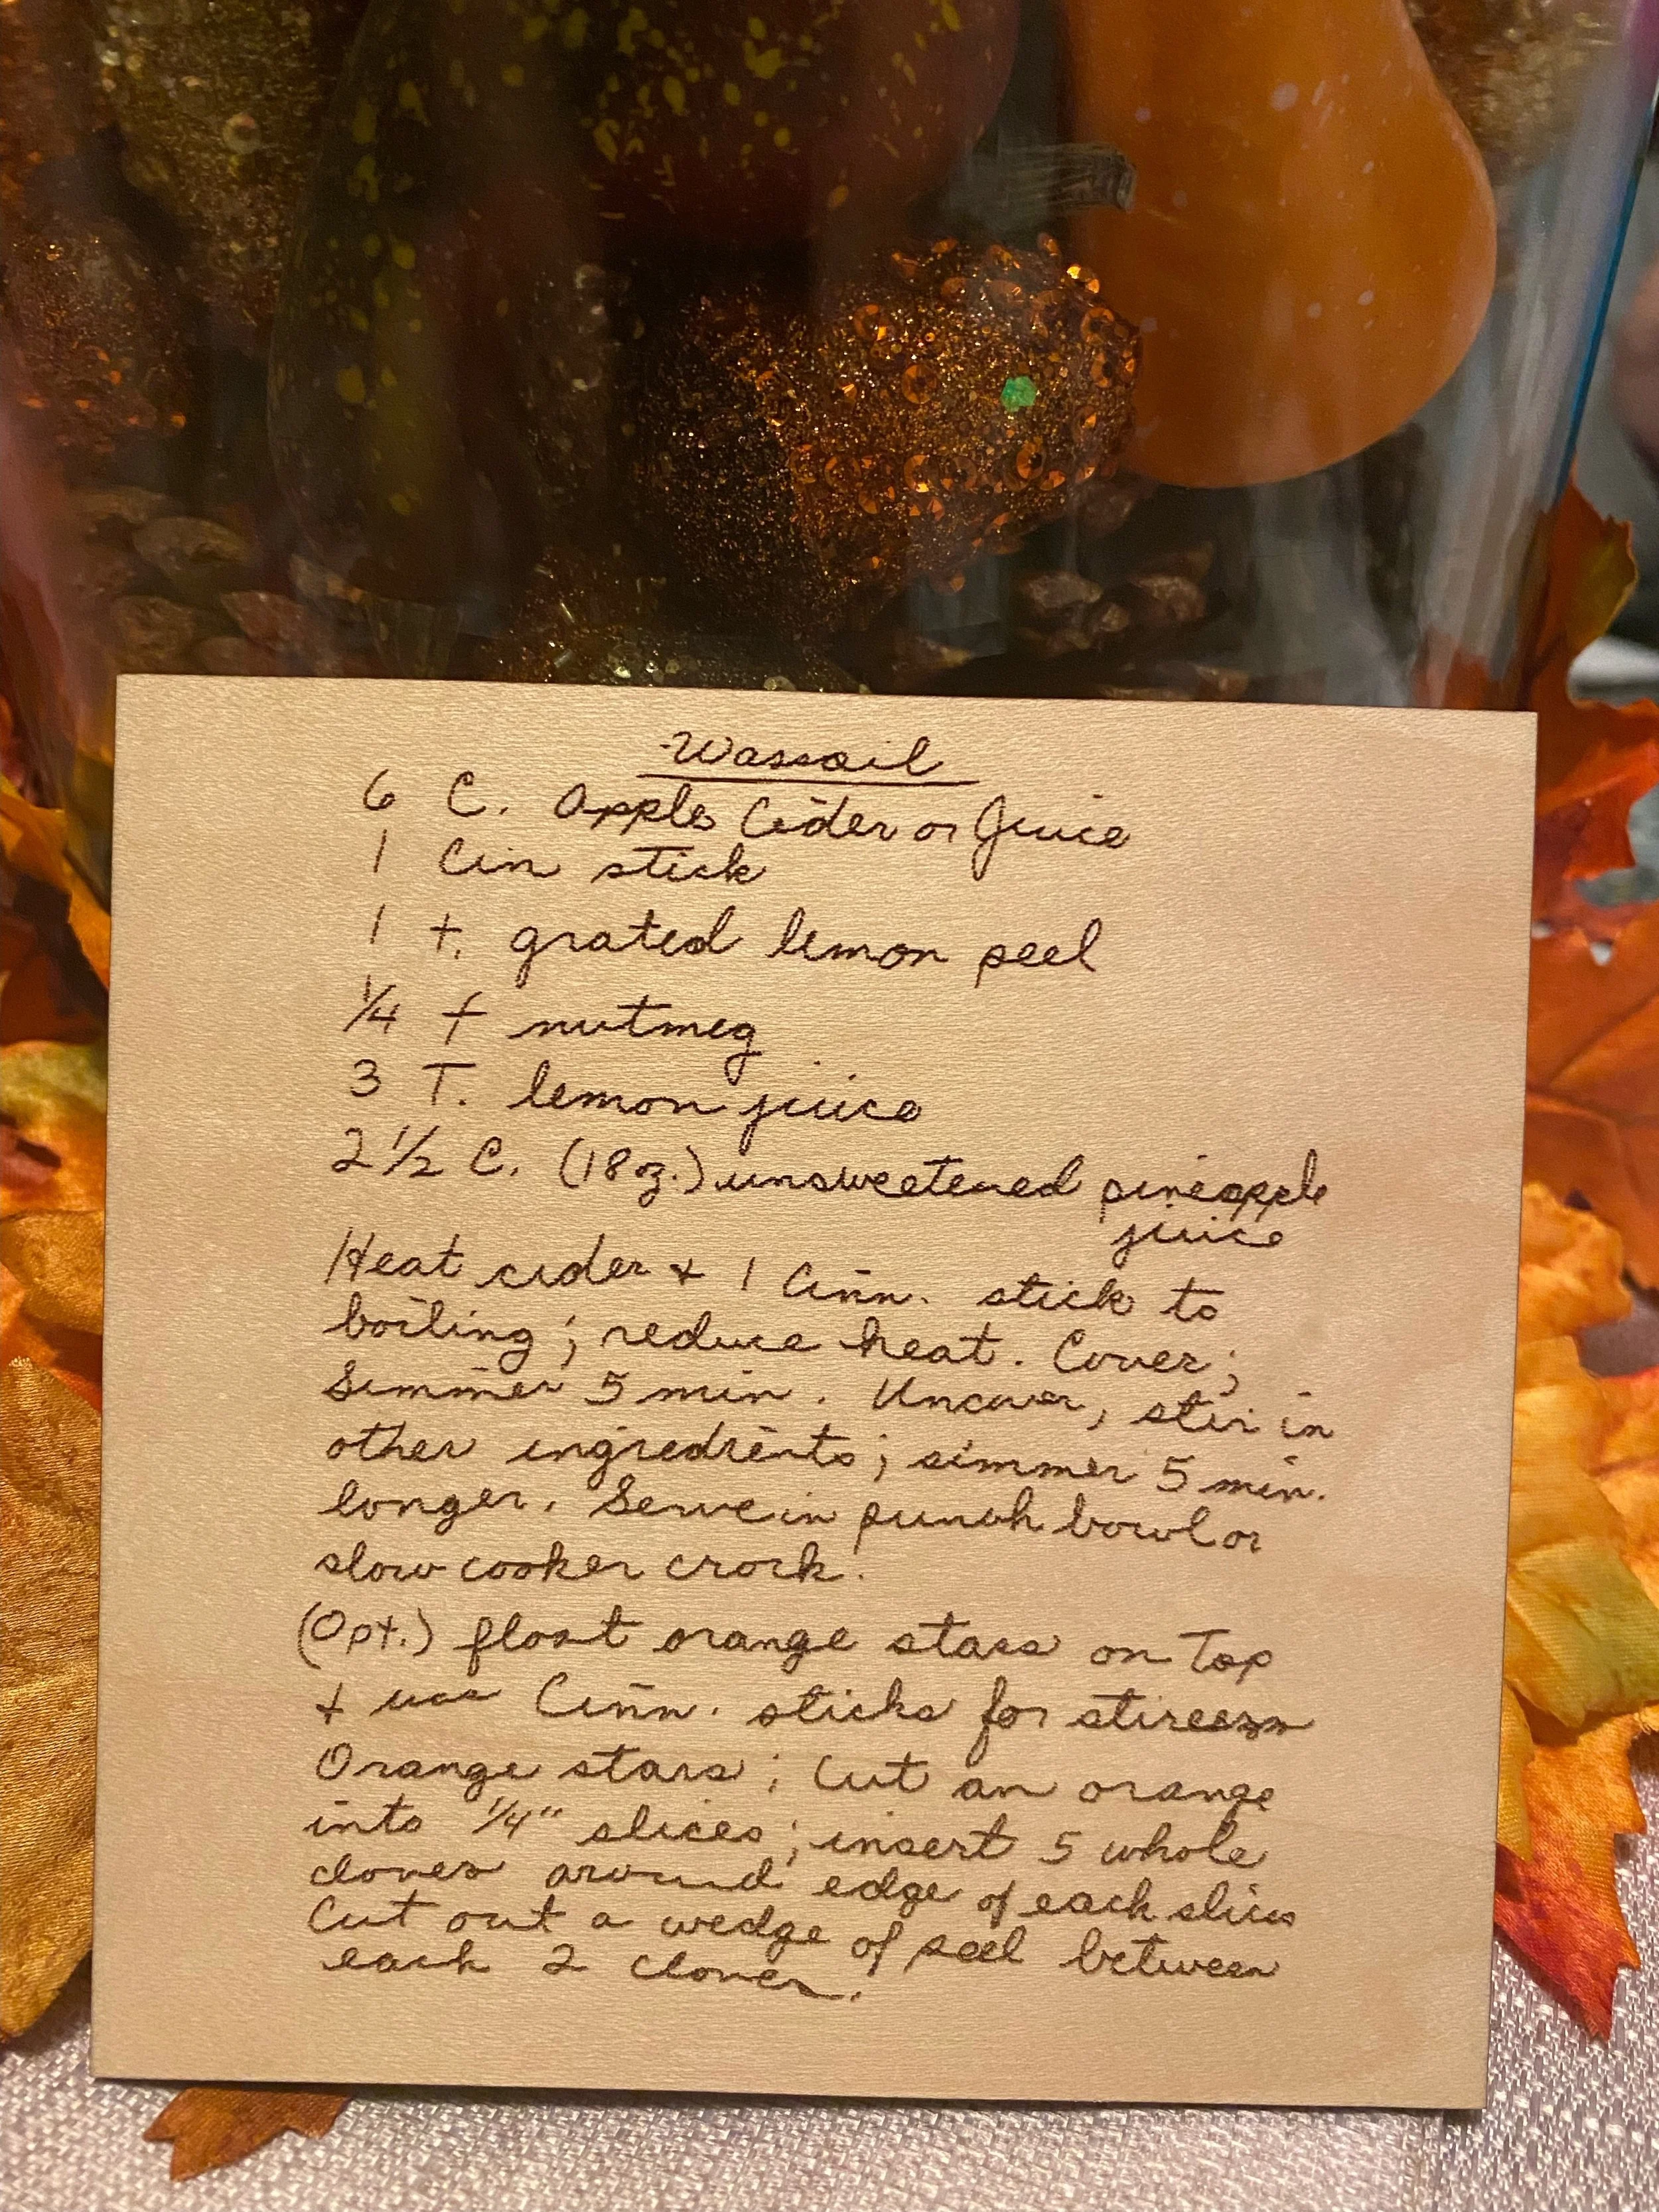 Wassail
6 C. Apple Cider or Juice
1 Cin stick
1 t. grated lemon peel
1/4 t nutmeg
3 T. lemon juice
2 1/2 C. (18 oz.) unsweetened pineapple
juice
Heat cider + 1 Cinn. stick to
boiling; reduce heat. Cover;
Simmer 5 min. Uncover, stir in
other ingredients; simmer 5 min.
longer. Serve in punch bowl or
slow cooker crock.
(Opt.) float orange stars on Top
+ use Cinn. sticks for stireers
Orange stars: Cut an orange
into 1/4" slices; insert 5 whole
cloves around edge of each slice
Cut out a wedge of peel between
each 2 cloves.